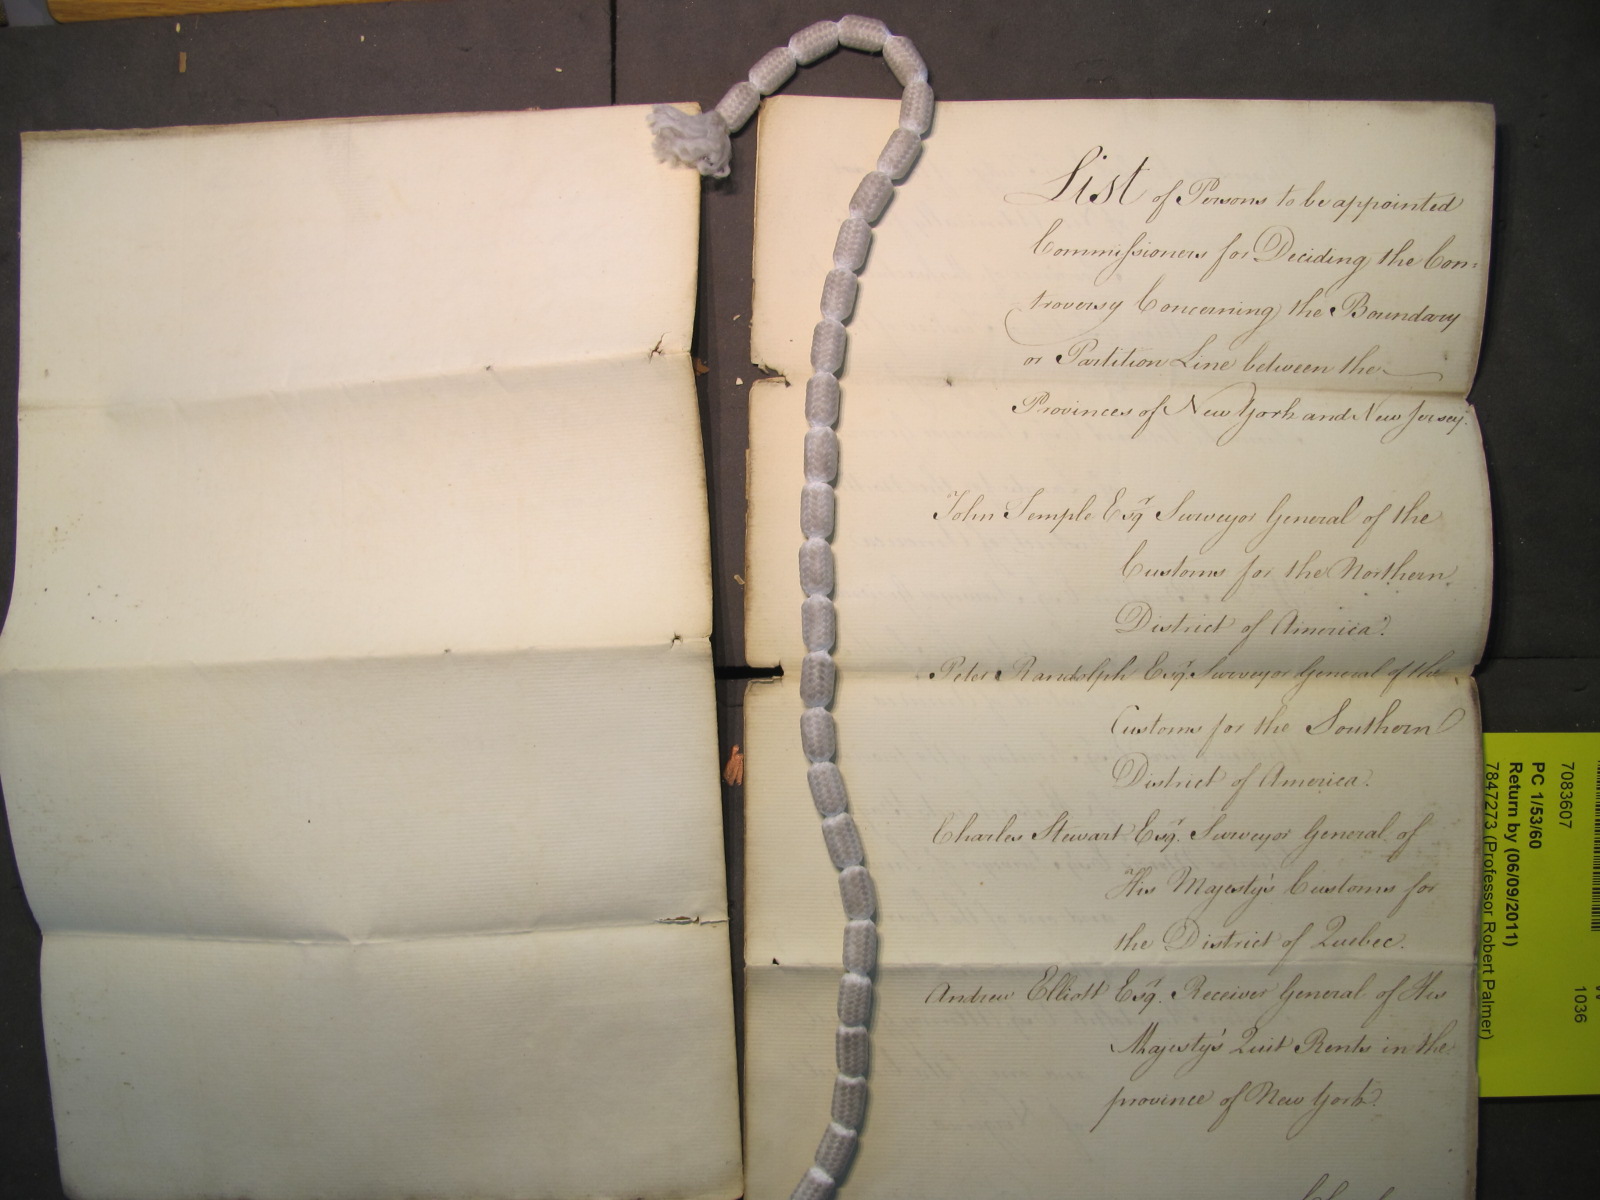 List of Persons to be appointed
Commissioners for Deciding the Con=
troversy Concerning the Boundary
or Partition Line between the
Provinces of New York and New Jersey.
John Temple Esqr. Surveyor General of the
Customs for the Northern
District of America.
Peter Randolph Esqr. Surveyor General of the
Customs for the Southern
District of America.
Charles Stewart Esqr. Surveyor General of
His Majesty's Customs for
the District of Quebec.
Andrew Elliott Esqr. Receiver General of His
Majesty's Quit Rents in the
province of New York.
7083607
1036
PC 1/53/60
Return by (06/09/2011)
7847273 (Professor Robert Palmer)